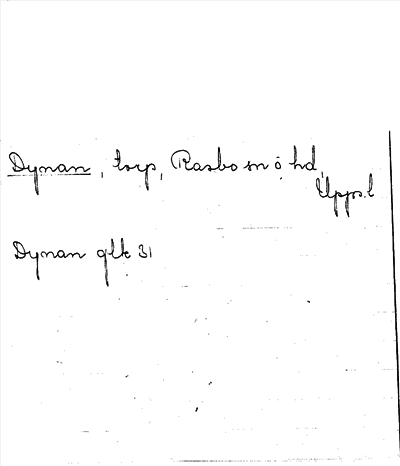 Dynan, torp, Rasbo sn ö hd,
Upps. l
Dynan glk 31